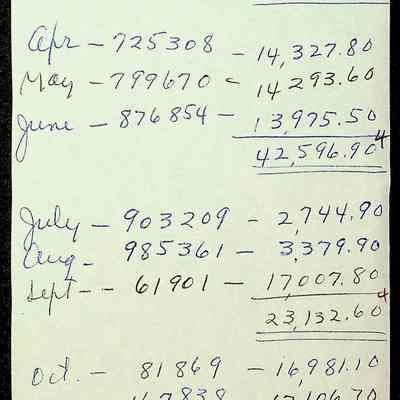 Apr - 725308 - 14,327.80
May - 799670 - 14 293.60
June - 876854 - 13,975.50
42,596.90
July - 903209 - 2,744.90
Aug - 985361 - 3,379.90
Sept - - 61901 - 17,007.80
23,132.60
Oct. - 81869 - 16,981.10